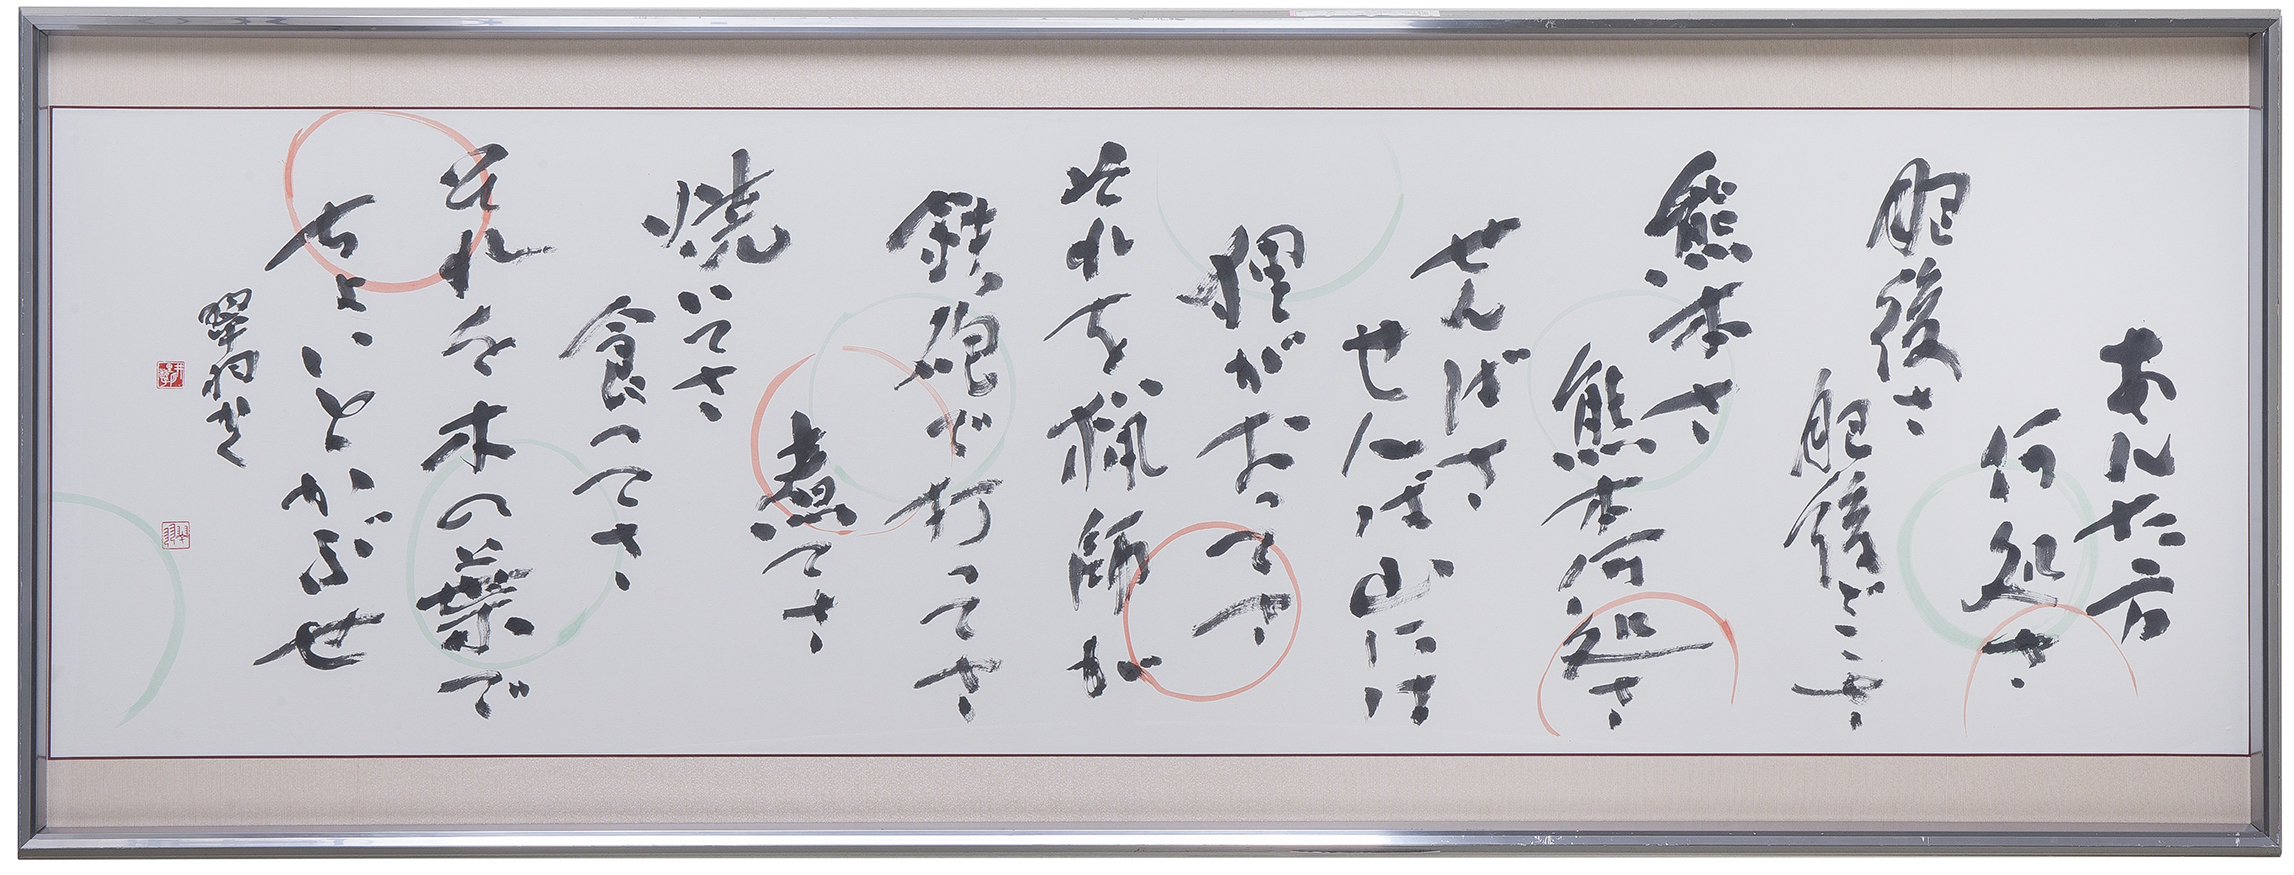 あんた方
何処さ
肥後さ
肥後どこさ
熊本さ
熊本何処さ
せんばさ
せんば山には
狸がおってさ
それを猟師が
鉄砲で打ってさ
煮てさ
焼いてさ
食ってさ
それを木の葉で
ちょいとかぶせ
翠羽書